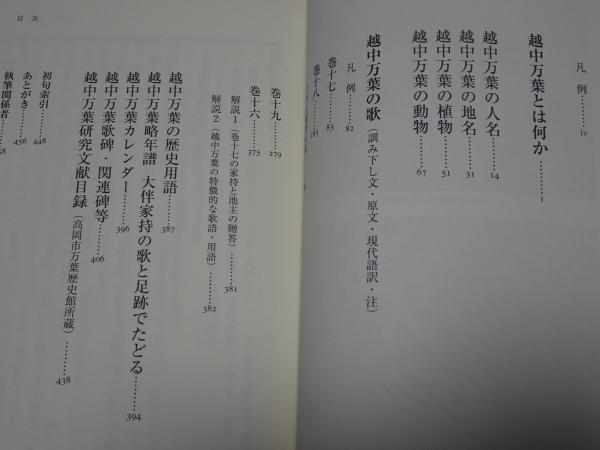 凡例………iv
越中万葉とは何か………1
越中万葉の人名………14
越中万葉の地名………31
越中万葉の植物………51
越中万葉の動物………67
越中万葉の歌（訓み下し文・原文・現代語訳・注）
凡例………82
巻十七………83
巻十八………183
目次
巻十九………279
巻十六………375
解説1（巻十七の家持と池主の贈答）………381
解説2（越中万葉の特徴的な歌語・用語）………382
越中万葉の歴史用語………387
越中万葉略年譜 大伴家持の歌と足跡でたどる………394
越中万葉カレンダー………396
越中万葉歌碑・関連碑等………406
越中万葉研究文献目録（高岡市万葉歴史館所蔵）………438
初句索引………448
あとがき………456
執筆関係者………